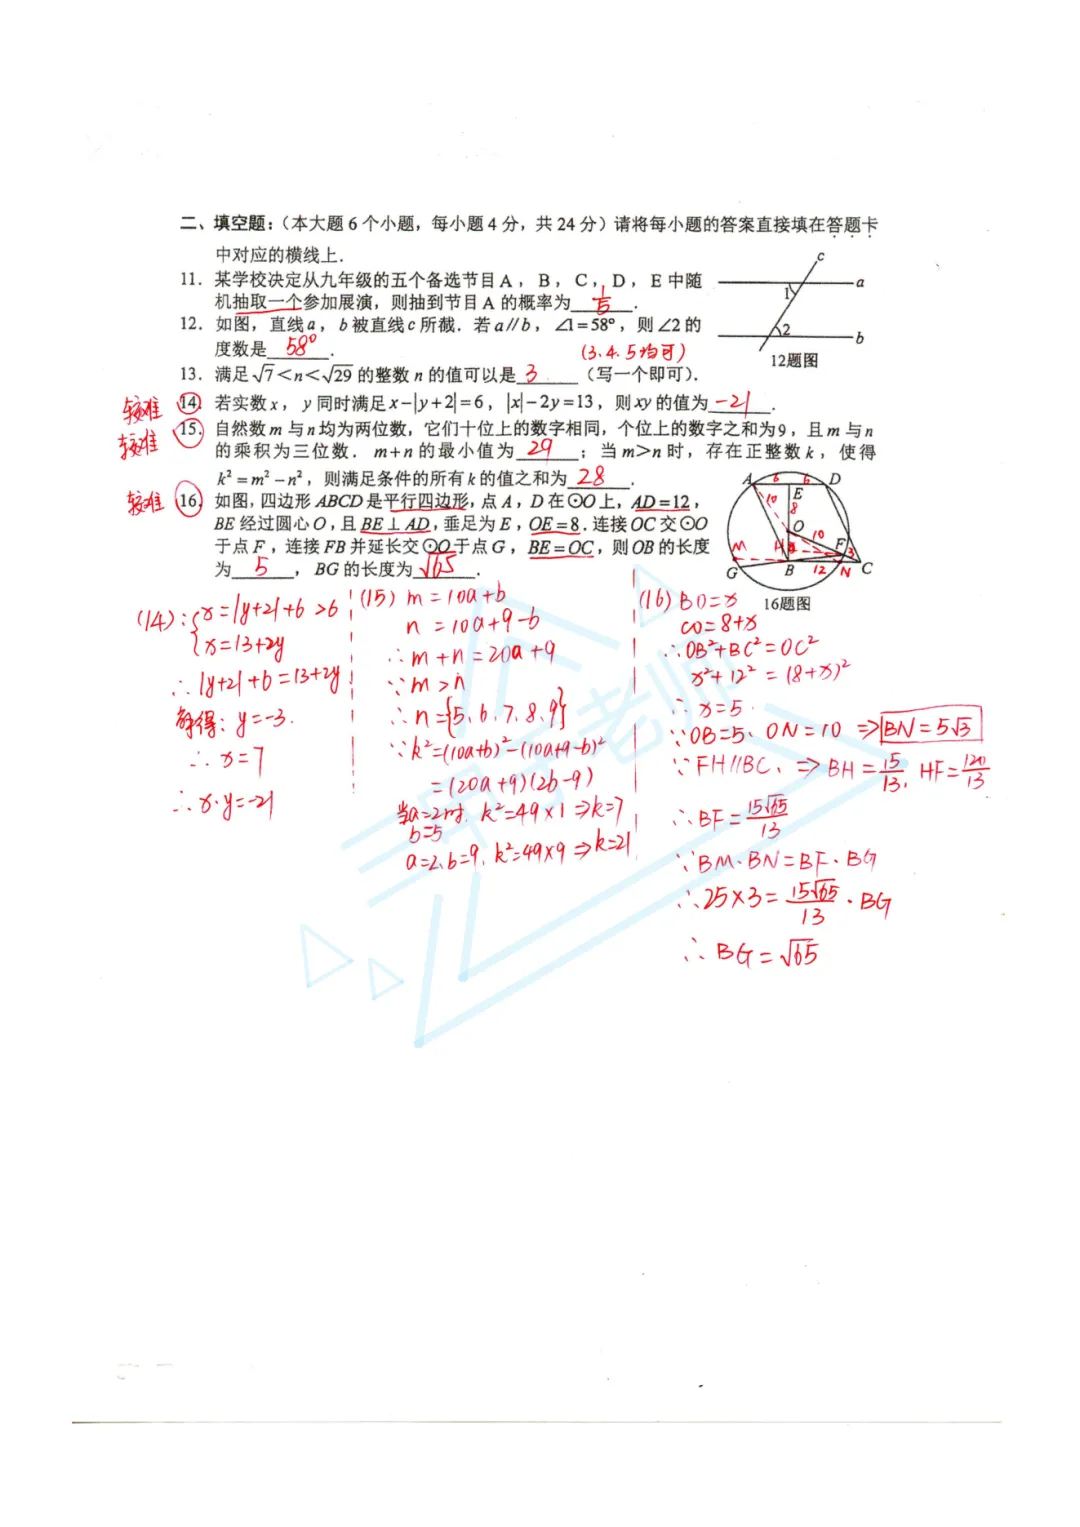 二、填空题:(本大题6个小题,每小题4分,共24分)请将每小题的答案直接填在答题卡
中对应的横线上.
11. 某学校决定从九年级的五个备选节目A,B,C,D,E中随
机抽取一个参加展演,则抽到节目A的概率为 1/5 .
12. 如图,直线a,b被直线c所截.若a//b,∠1=58°,则∠2的
度数是 58° .
(3.4.5均可)
13. 满足√7<n<√29的整数n的值可以是 3 (写一个即可).
c
a
1
2
b
12题图
较难 14. 若实数x,y同时满足x-|y+2|=6,|x|-2y=13,则xy的值为 -21 .
较难 15. 自然数m与n均为两位数,它们十位上的数字相同,个位上的数字之和为9,且m与n
的乘积为三位数.m+n的最小值为 29 ;当m>n时,存在正整数k,使得
k²=m²-n²,则满足条件的所有k的值之和为 28 .
较难 16. 如图,四边形ABCD是平行四边形,点A,D在⊙O上,AD=12,
BE经过圆心O,且BE⊥AD,垂足为E,OE=8.连接OC交⊙O
于点F,连接FB并延长交⊙O于点G,BE=OC,则OB的长度
为 5 ,BG的长度为 √65 .
A 6 6 D
E
10 8
O
10
M H F 3
G B 12 N C
16题图
(14): {x=|y+2|+6>6
x=13+2y
∴|y+2|+6=13+2y
解得: y=-3.
∴x=7
∴x·y=-21
(15) m=10a+b
n=10a+9-b
∴m+n=20a+9
∵m>n
∴n={5,6,7,8,9}
∵k²=(10a+b)²-(10a+9-b)²
=(20a+9)(2b-9)
当a=2时, k²=49×1⇒k=7
b=5
a=2,b=9, k²=49×9⇒k=21
(16) BO=x
CO=8+x
∴OB²+BC²=OC²
x²+12²=(8+x)²
∴x=5.
∵OB=5、ON=10 ⇒BN=5√3
∵FH//BC, ⇒BH=15/13, HF=120/13
∴BF=15√65/13
∵BM·BN=BF·BG
∴25×3=15√65/13·BG
∴BG=√65